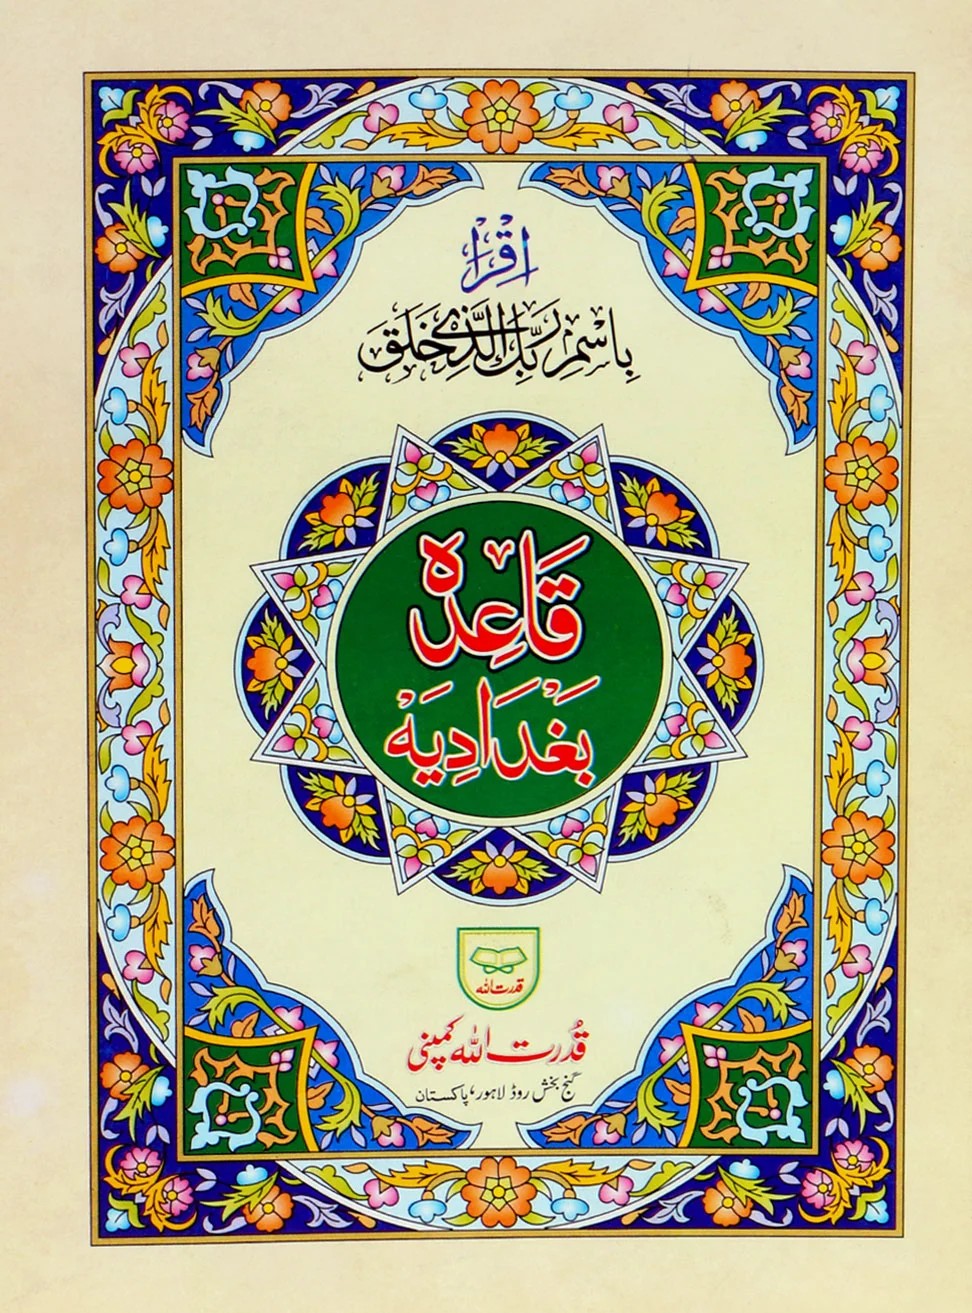 اِقْرَاْ
بِاسْمِ رَبِّكَ الَّذِیْ خَلَقَ
قَاعِدہ
بَغْدَادِیَه
قدرت اللہ
قُدرت اللہ کمپنی
گنج بخش روڈ لاہور، پاکستان